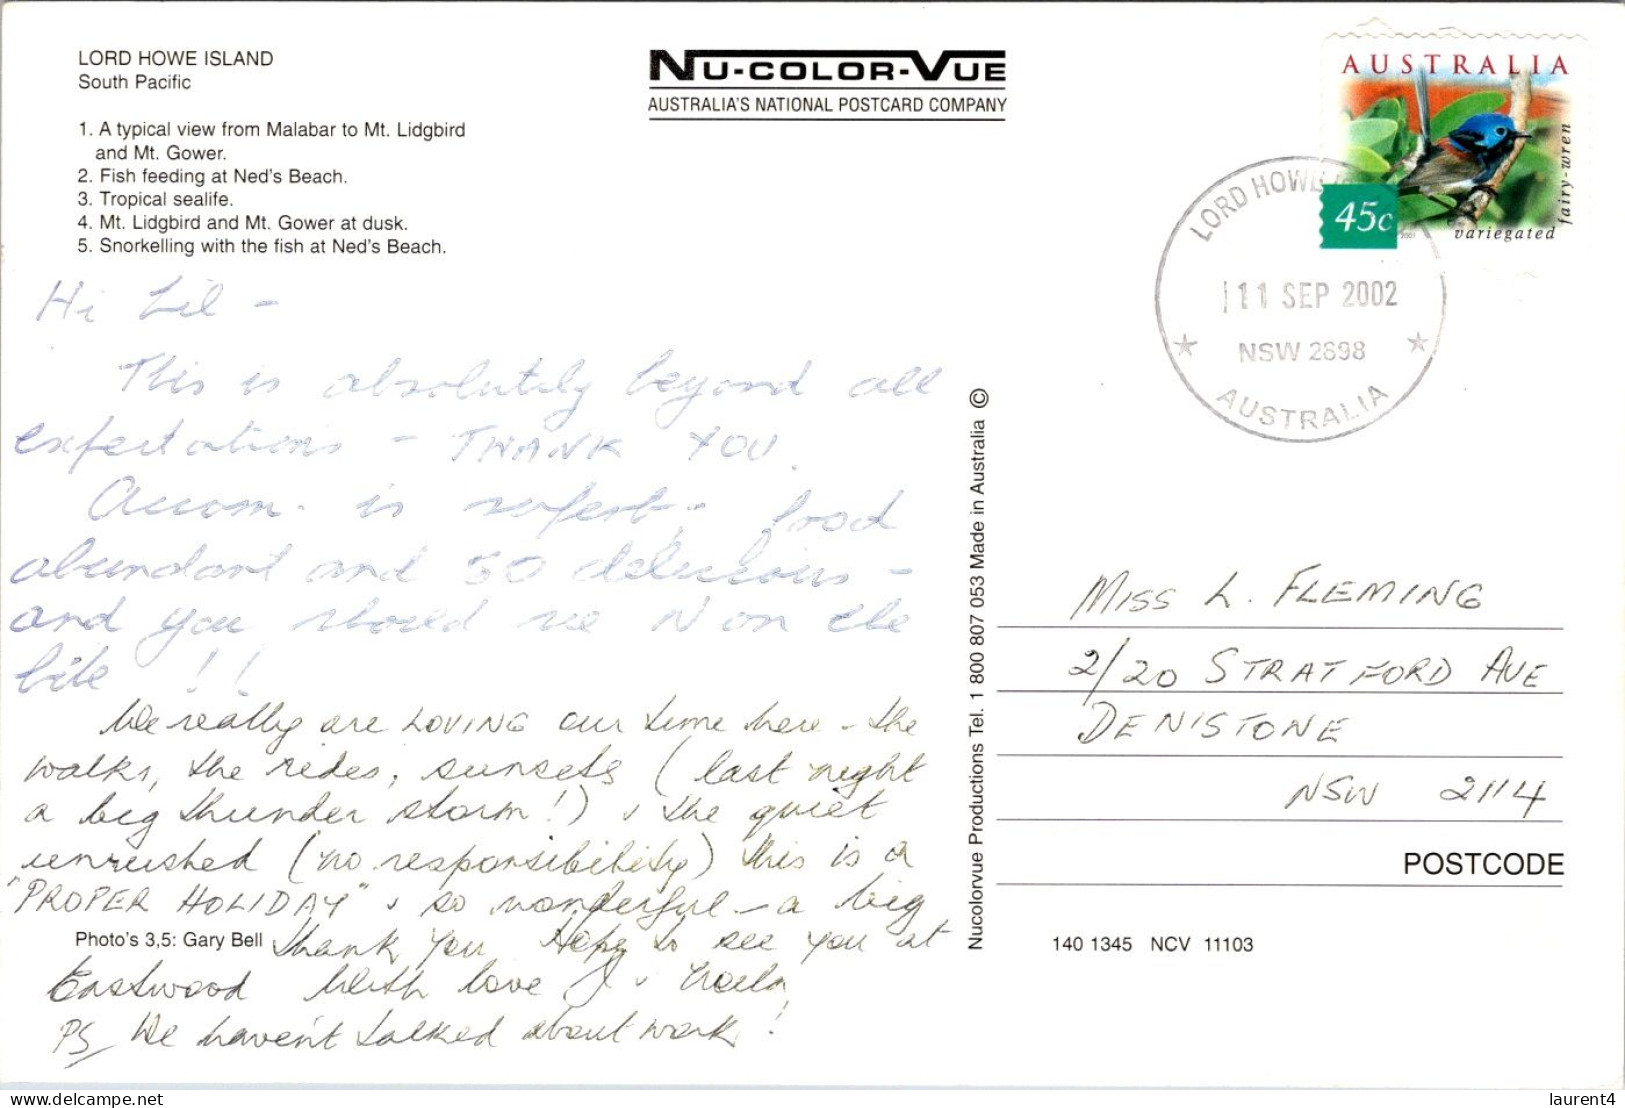 LORD HOWE ISLAND
South Pacific
1. A typical view from Malabar to Mt. Lidgbird
and Mt. Gower.
2. Fish feeding at Ned's Beach.
3. Tropical sealife.
4. Mt. Lidgbird and Mt. Gower at dusk.
5. Snorkelling with the fish at Ned's Beach.
NU-COLOR-VUE
AUSTRALIA'S NATIONAL POSTCARD COMPANY
AUSTRALIA
45c
2001
variegated
fairy-wren
LORD HOWE
11 SEP 2002
NSW 2898
AUSTRALIA
Hi Lil -
This is absolutely beyond all
expectations - THANK YOU.
Accom. is perfect - food
abundant and SO delicious -
and you should see N on the
bike !!
We really are LOVING our time here - the
walks, the rides, sunsets (last night
a big thunder storm!) & the quiet
unrushed (no responsibility) this is a
"PROPER HOLIDAY" & so wonderful - a big
Thank You Hope to see you at
Eastwood With love J &
PS We haven't talked about work!
Photo's 3,5: Gary Bell
Nucolorvue Productions Tel. 1 800 807 053 Made in Australia ©
MISS L. FLEMING
2/20 STRATFORD AVE
DENISTONE
NSW 2114
POSTCODE
140 1345 NCV 11103
delcampe.net
laurent4